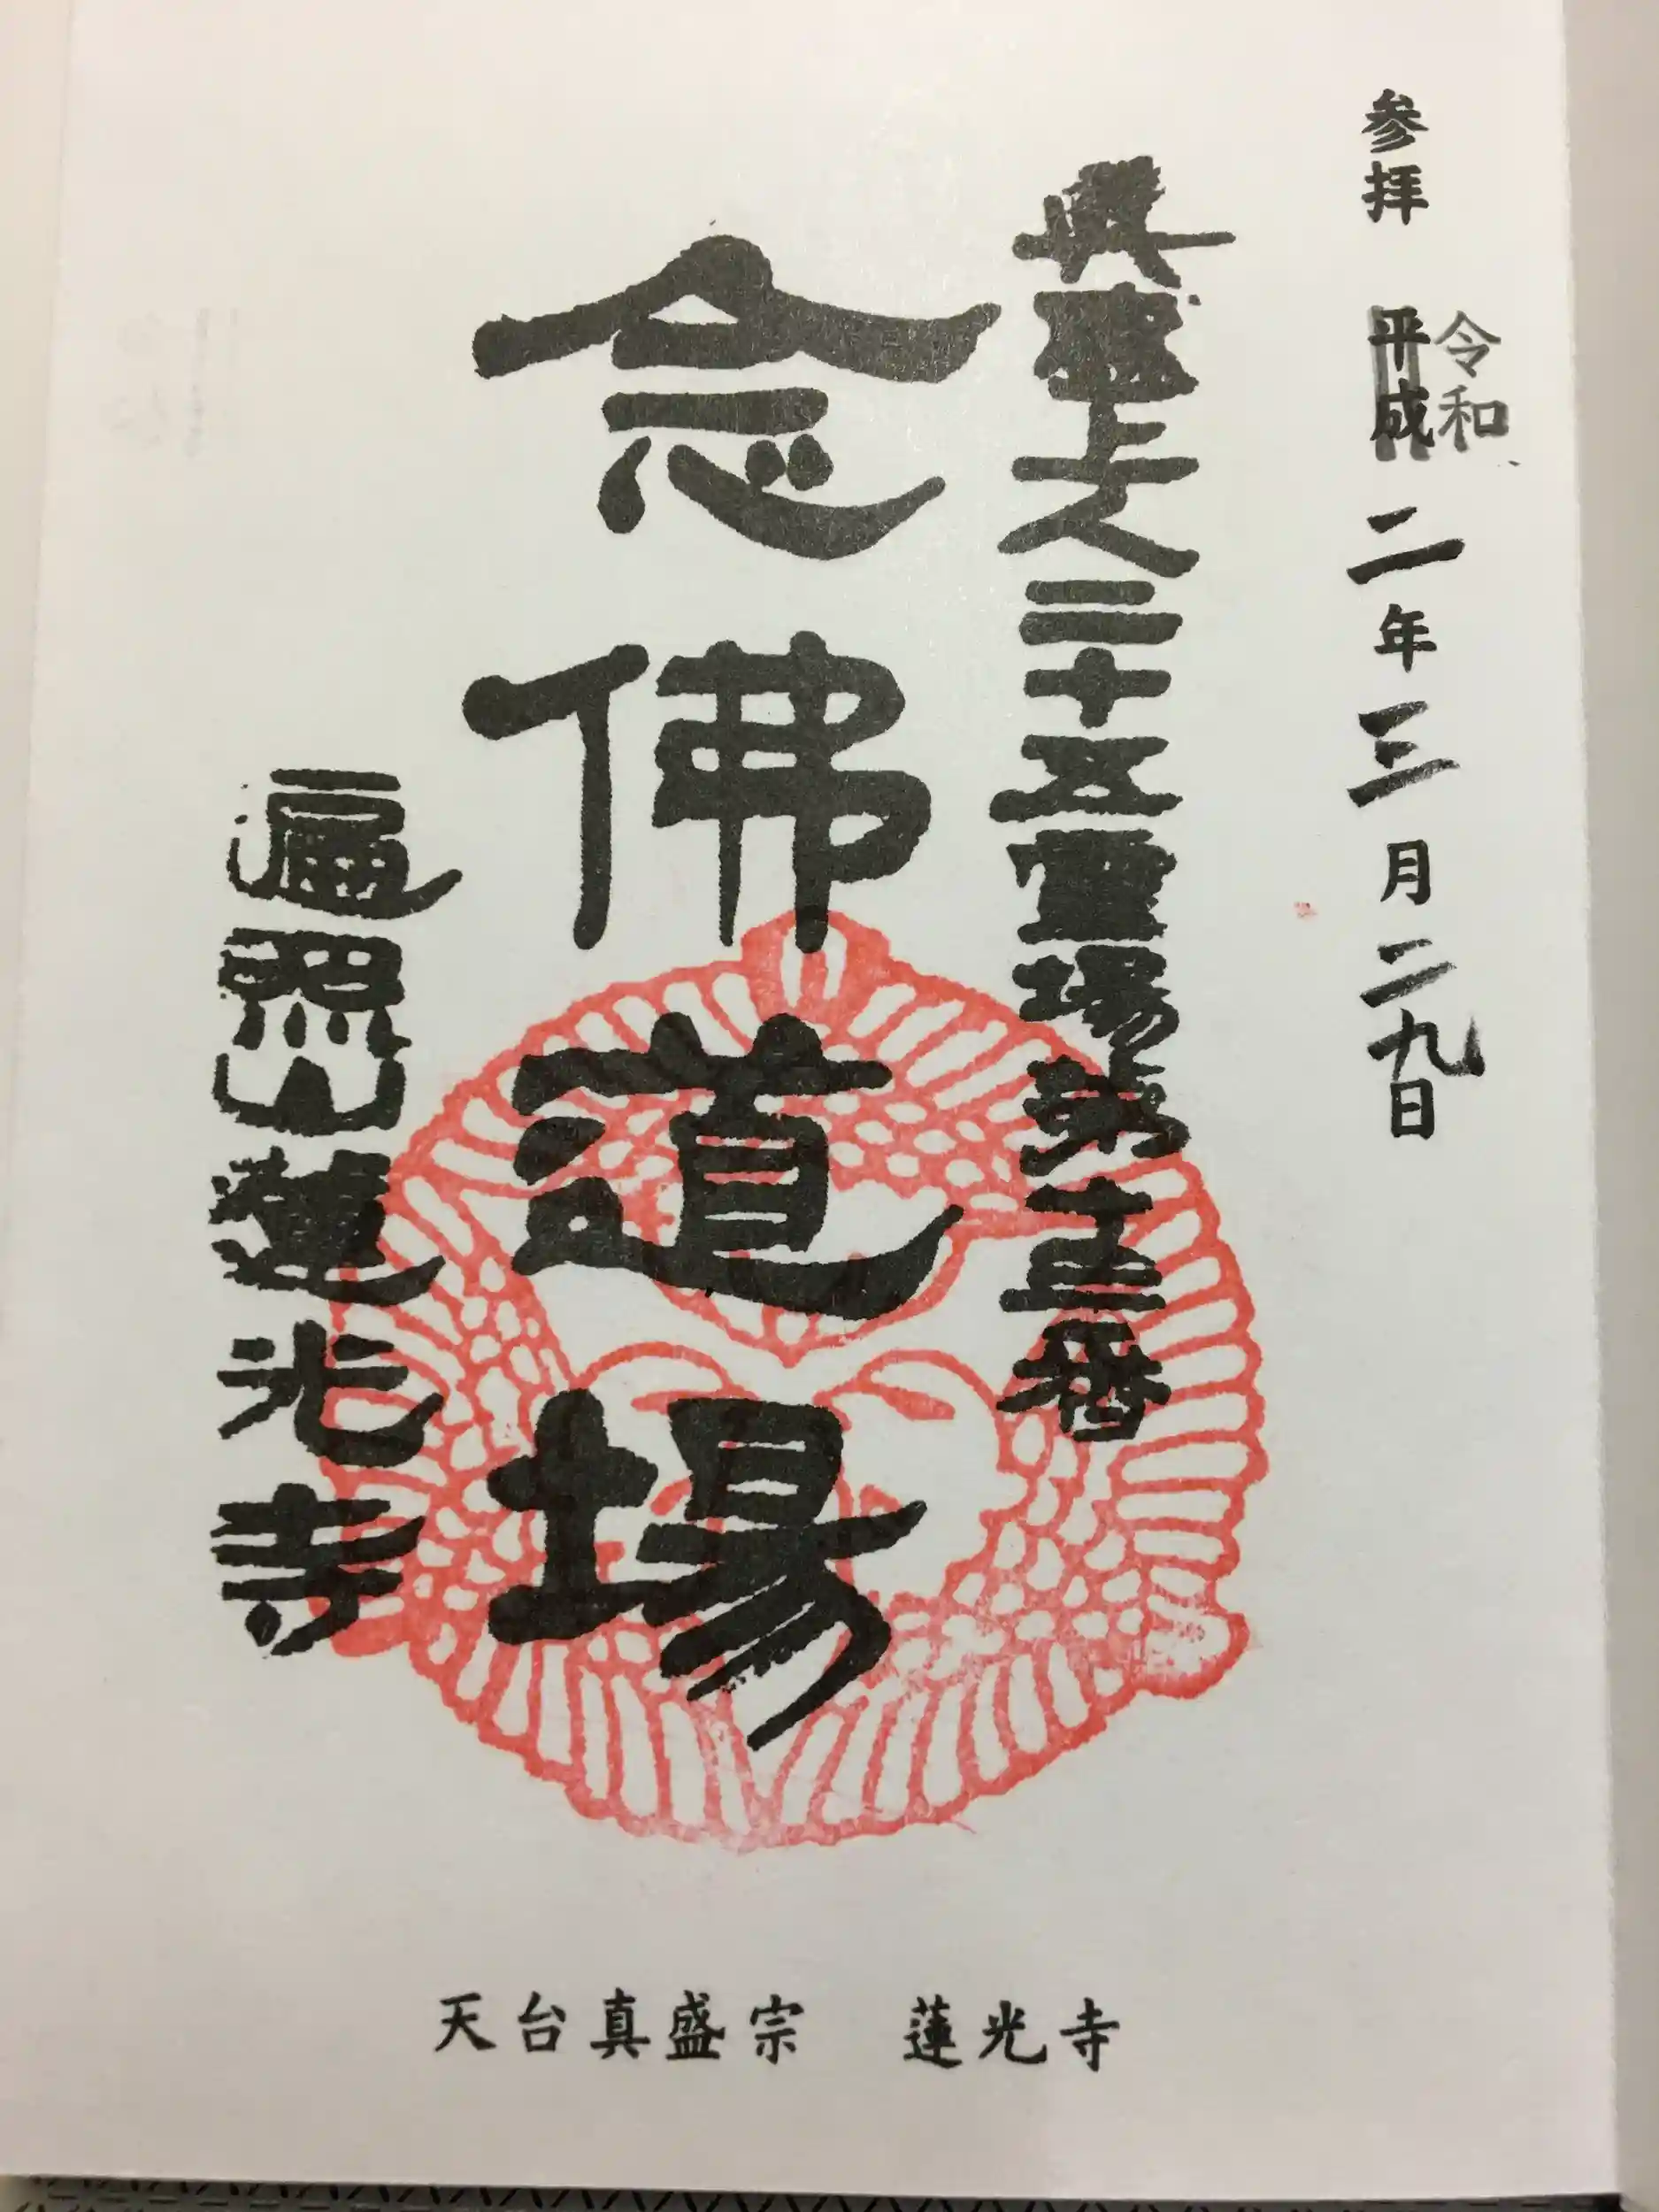 参拝 平成 令和 二年三月二九日
眞盛上人二十五靈場第十三番
念佛道場
遍照山蓮光寺
天台真盛宗　蓮光寺